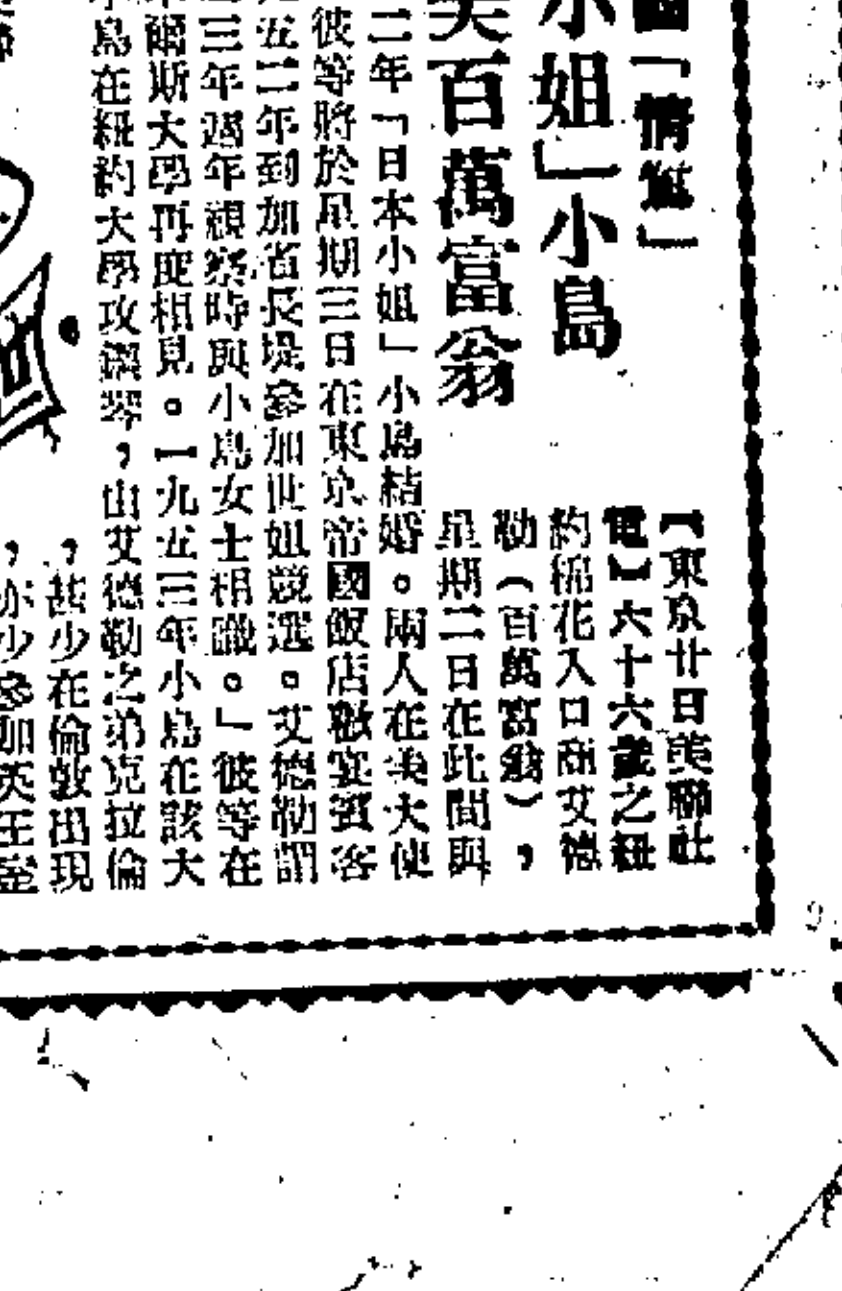 國「情無」
小姐」小島
美百萬富翁
【東京廿日美聯社
電】六十六歲之紐
約棉花入口商艾德
勒（百萬富翁），
星期二日在此間與
二年「日本小姐」小島結婚。兩人在美大使
彼等將於星期三日在東京帝國飯店歡宴賓客
五二年到加省長堤參加世姐競選。艾德勒謂
三年週年視察時與小島女士相識。」彼等在
爾斯大學再度相見。一九五三年小島在該大
島在紐約大學攻鋼琴，由艾德勒之弟克拉倫
，甚少在倫敦出現
，亦少參加英王室